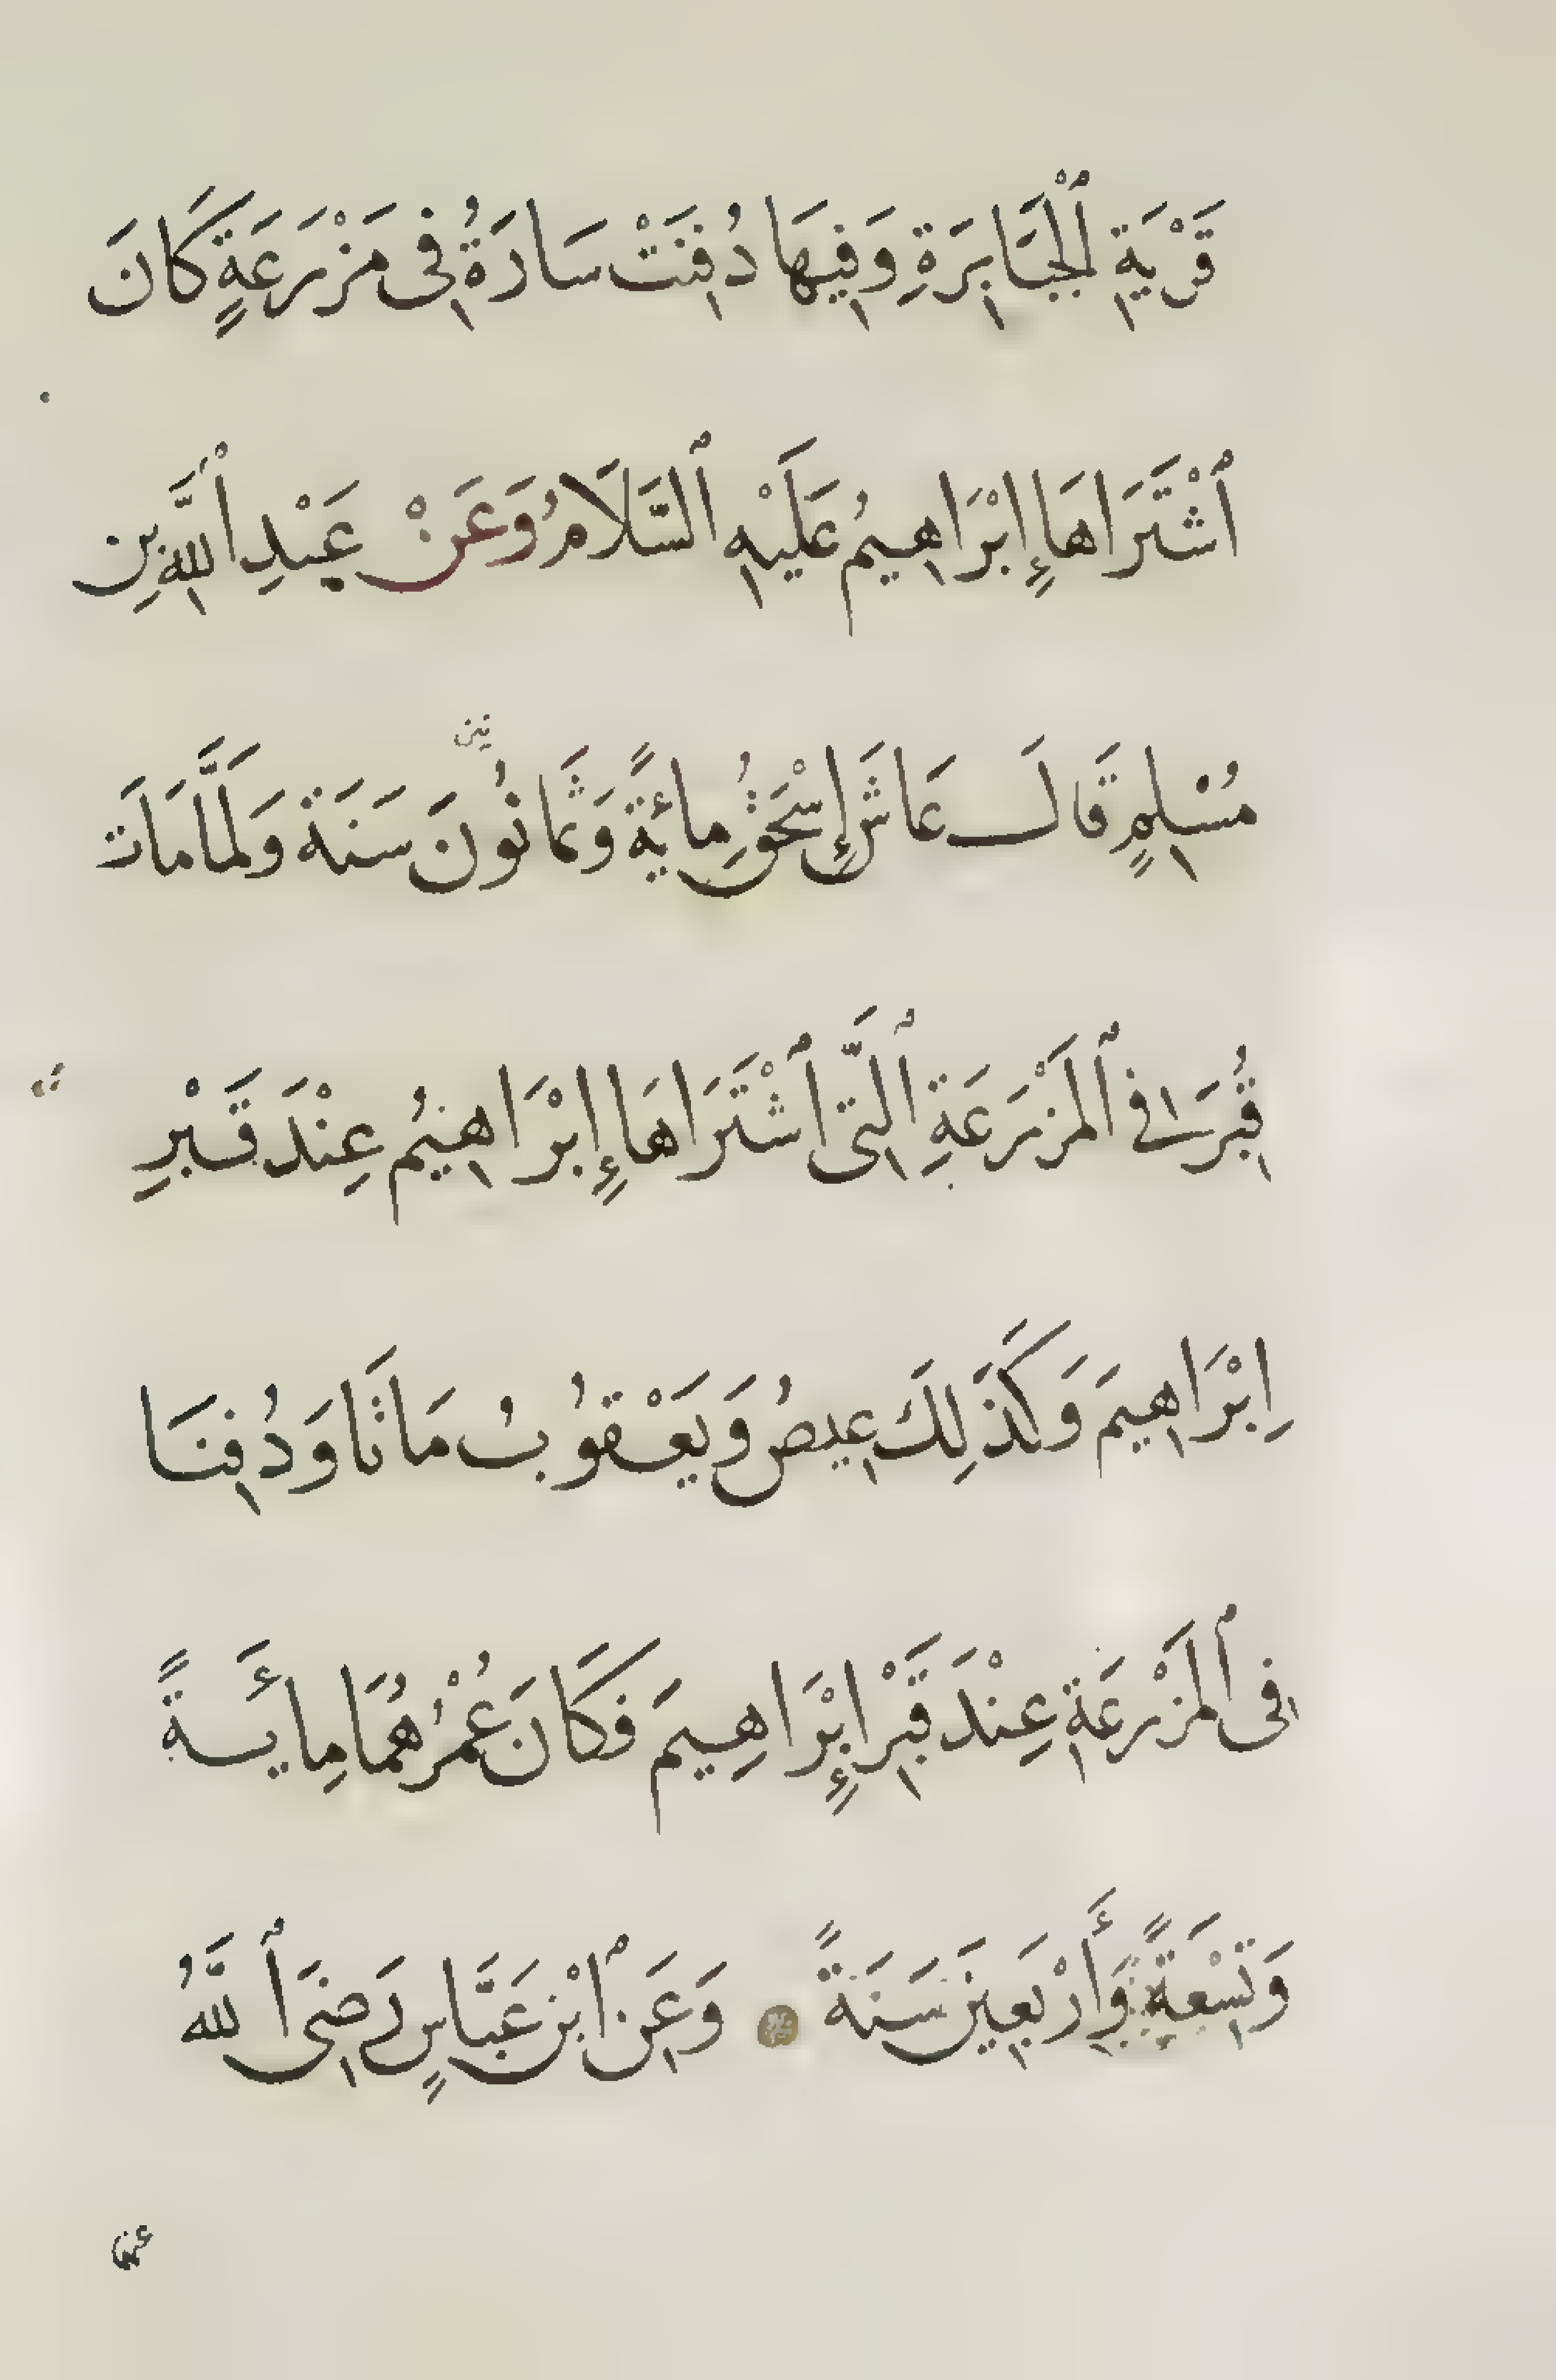 قَرْيَةِ ٱلْجَبَابِرَةِ وَفِيهَا دُفِنَتْ سَارَةُ فِى مَزْرَعَةٍ كَانَ
ٱشْتَرَاهَا إِبْرَاهِيمُ عَلَيْهِ ٱلسَّلَامُ وَعَنْ عَبْدِ ٱللَّهِ بْنِ
مُسْلِمٍ قَالَ عَاشَ إِسْحَقُ مِائَةً وَثَمَانُونَ سَنَةً وَلَمَّا مَاتَ
نين
قُبِرَ فِي ٱلْمَزْرَعَةِ ٱلَّتِى ٱشْتَرَاهَا إِبْرَاهِيمُ عِنْدَ قَبْرِ
اِبْرَاهِيمَ وَكَذَلِكَ عِيصُ وَيَعْقُوبُ مَاتَا وَدُفِنَا
فِى ٱلْمَزْرَعَةِ عِنْدَ قَبْرِ إِبْرَاهِيمَ فَكَانَ عُمْرُهُمَا مِائَةً
وَتِسْعَةً وَأَرْبَعِينَ سَنَةً وَعَنِ ٱبْنِ عَبَّاسٍ رَضِىَ ٱللَّهُ
عنهما